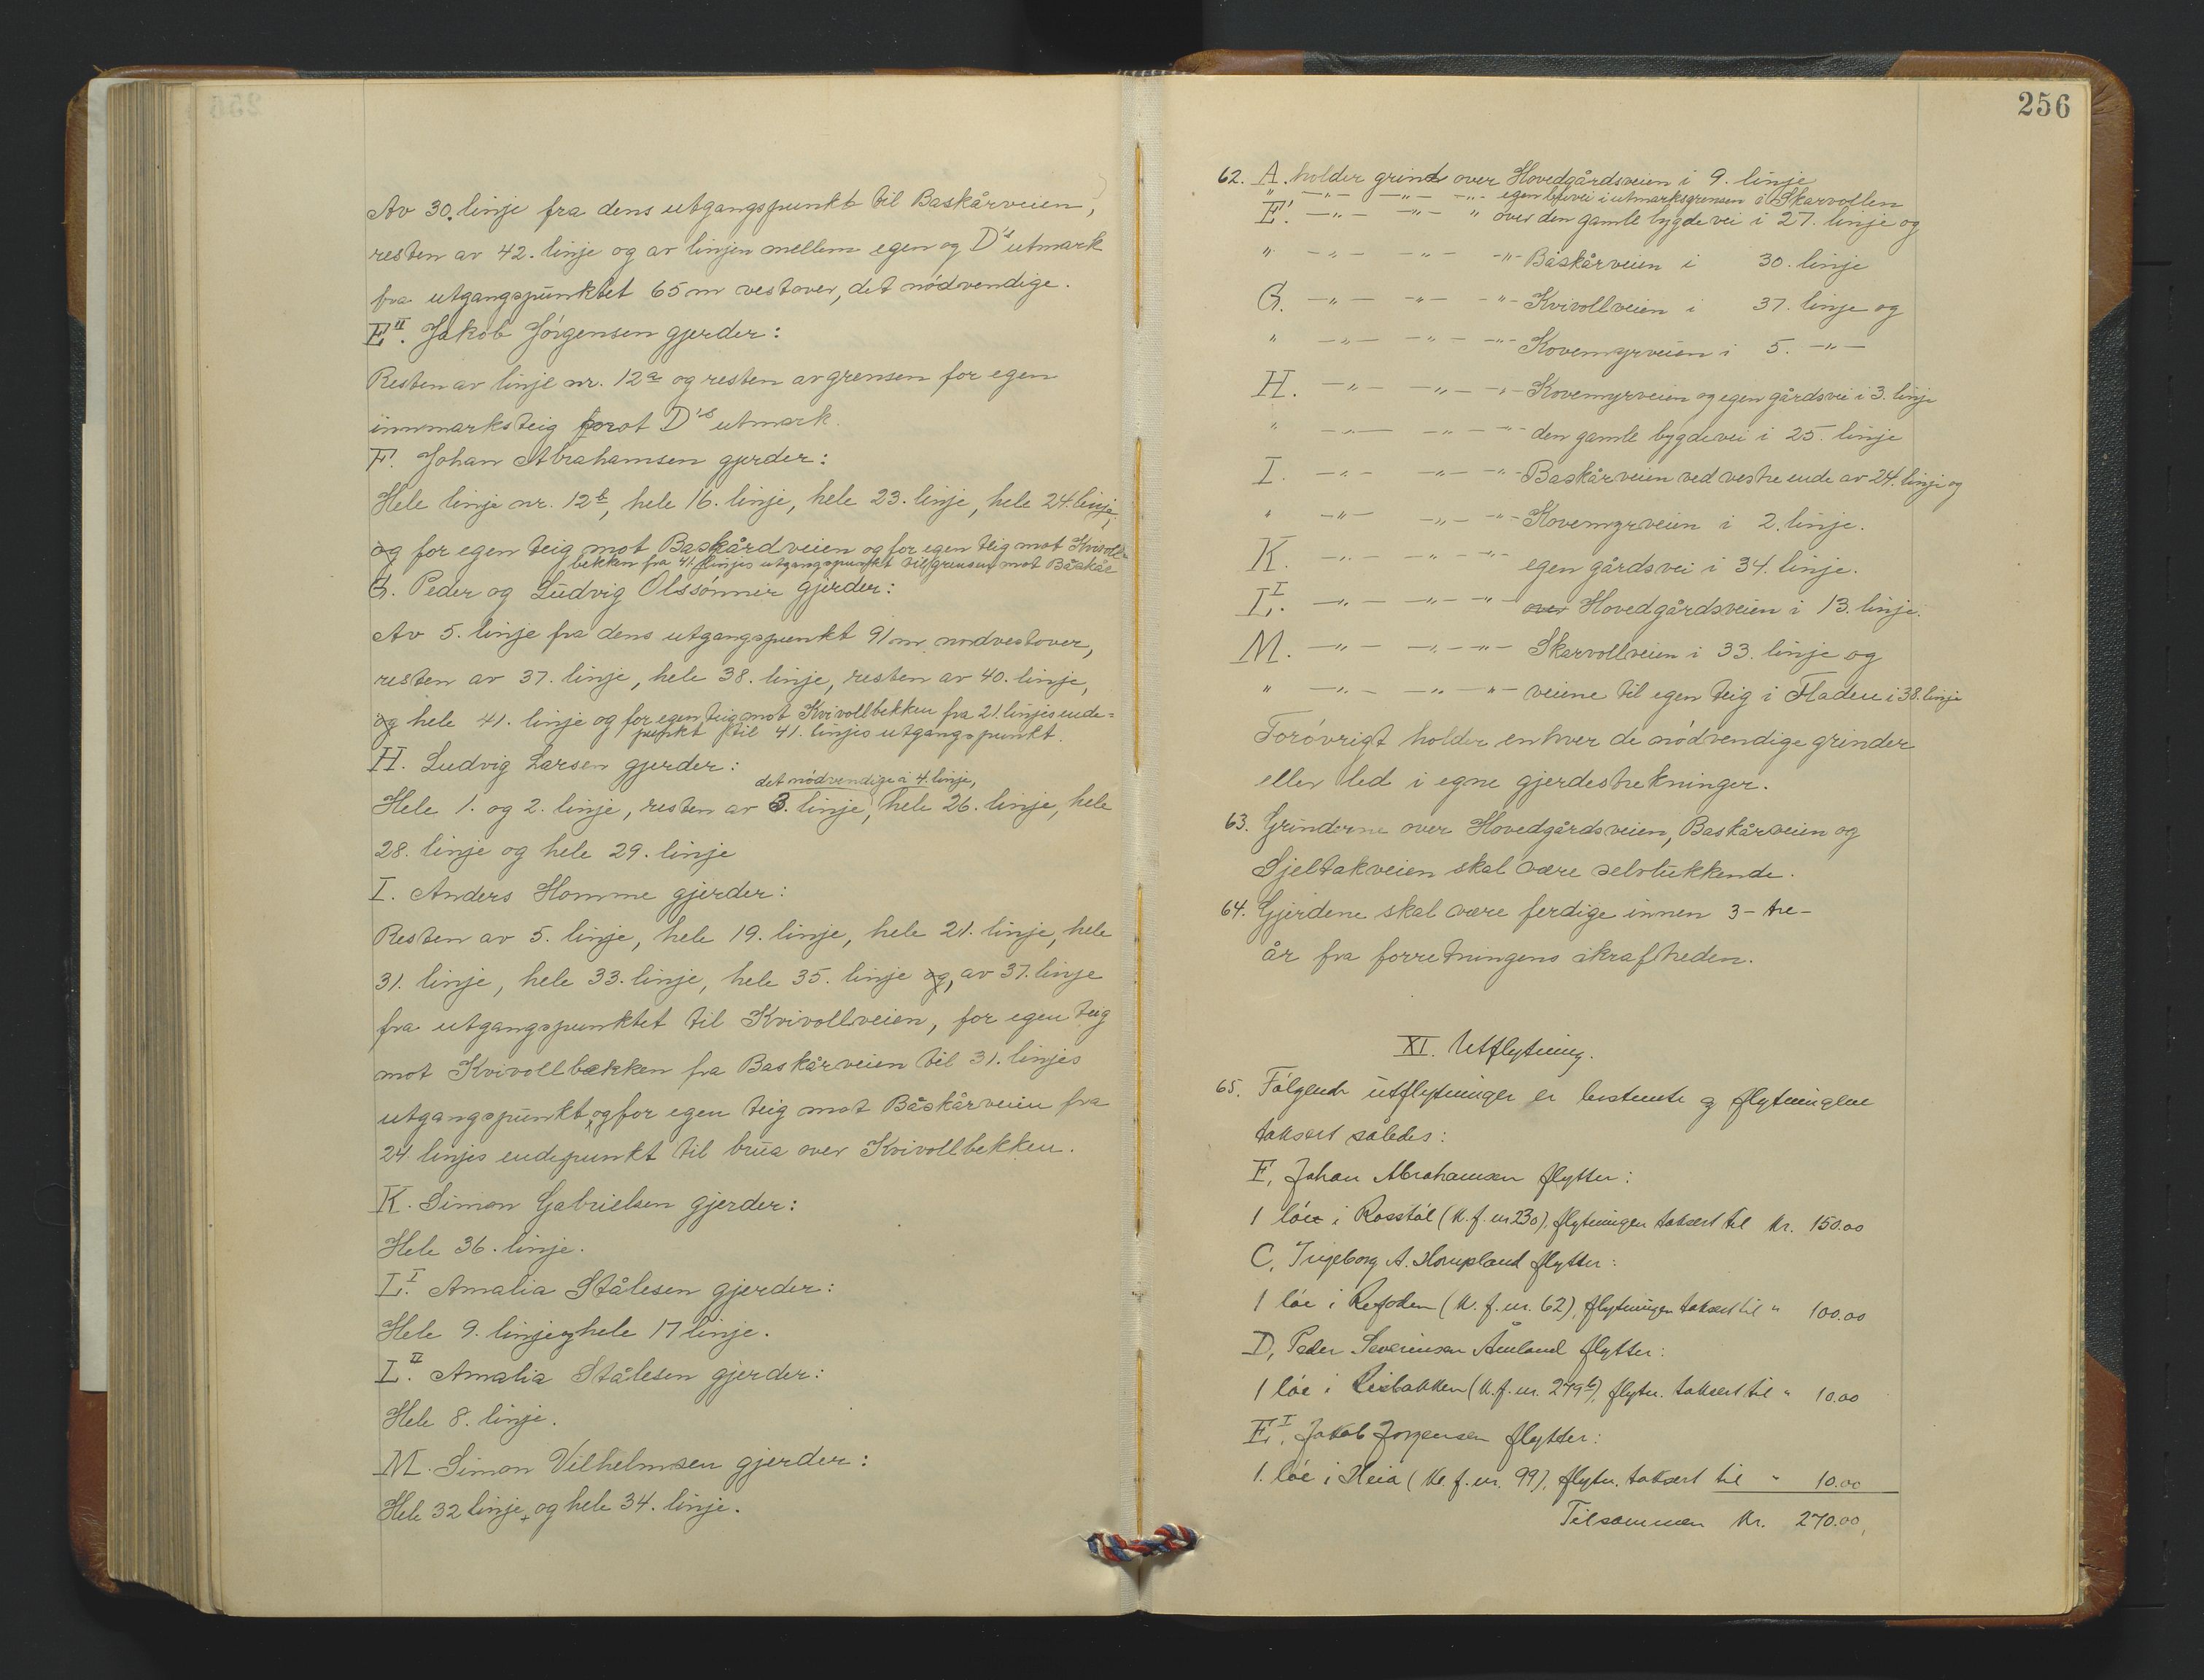 Av 30. linje fra dens utgangspunkt til Baskårveien,
resten av 42. linje og av linjen mellem egen og D's utmark
fra utgangspunktet 65 m vestover, det nödvendige.
E II. Jakob Jörgensen gjerder:
Resten av linje nr. 12a og resten av grensen for egen
innmarksteig imot D's utmark.
F. Johan Abrahamsen gjerder:
Hele linje nr. 12b, hele 16. linje, hele 23. linje, hele 24. linje,
og for egen teig mot Baskårdveien og for egen teig mot Kvivoll-
bekken fra 41. linjes utgangspunkt til grensen mot Båskår
G. Peder og Ludvig Olssönner gjerder:
Av 5. linje fra dens utgangspunkt 91 m nordvestover,
resten av 37. linje, hele 38. linje, resten av 40. linje,
og hele 41. linje og for egen teig mot Kvivollbekken fra 21. linjes ende-
punkt til 41. linjes utgangspunkt.
H. Ludvig Larsen gjerder:
det nödvendige i 4. linje,
Hele 1. og 2. linje, resten av 3. linje, hele 26. linje, hele
28. linje og hele 29. linje
I. Anders Homme gjerder:
Resten av 5. linje, hele 19. linje, hele 21. linje, hele
31. linje, hele 33. linje, hele 35. linje og, av 37. linje
fra utgangspunktet til Kvivollveien, for egen teig
mot Kvivollbekken fra Baskårveien til 31. linjes
utgangspunkt, og for egen teig mot Båskårveien fra
24. linjes endepunkt til brua over Kvivollbekken.
K. Simon Gabrielsen gjerder:
Hele 36. linje.
L I. Amalia Stålesen gjerder:
Hele 9. linje og hele 17 linje.
L II. Amalia Stålesen gjerder:
Hele 8. linje.
M. Simon Vilhelmsen gjerder:
Hele 32 linje, og hele 34. linje.
256
62. A. holder grind over Hovedgårdsveien i 9. linje
" —"— —"— —"— egen i utmarksgrensen i Skarvollen
E'. —"— —"— " over den gamle bygdevei i 27. linje og
" —"— —"— —"— Båskårveien i 30. linje
G. —"— —"— —"— Kvivollveien i 37. linje og
" —"— —"— —"— Kovemyrveien i 5. —"—
H. —"— —"— —"— Kovemyrveien og egen gårdsvei i 3. linje
" —"— —"— —"— den gamle bygdevei i 25. linje
I. —"— —"— —"— Baskårveien ved vestre ende av 24. linje og
" —"— —"— —"— Kovemyrveien i 2. linje.
K. —"— —"— —"— egen gårdsvei i 34. linje.
L I. —"— —"— —"— over Hovedgårdsveien i 13. linje.
M. —"— —"— —"— Skarvollveien i 33. linje og
" —"— —"— —"— veiene til egen teig i Fladen i 38. linje
Foróvrigt holder enhver de nödvendige grinder
eller led i egne gjerdestrekninger.
63. Grinderne over Hovedgårdsveien, Baskårveien og
Gjeltakveien skal være selvlukkende.
64. Gjerdene skal være ferdige innen 3- tre-
år fra forretningens ikraftheden.
XI. Utflytning.
65. Følgende utflytninger er bestemte og flytningene
taksert således:
F, Johan Abrahamsen flytter:
1 löe i Rosstöl (K. f. nr 230), flytningen taksert til Kr. 150.00
C, Ingeborg A. Hompland flytter:
1 löe i (K. f. nr. 62), flytningen taksert til " 100.00
D, Peder Severinsen Åmland flytter:
1 löe i Lisbakken (K. f. nr. 279b), flytn. taksert til " 10.00
E I, Jakob Jörgensen flytter:
1. löe i Heia (K. f. nr. 99), flytn. taksert til " 10.00
Tilsammen Kr. 270.00,